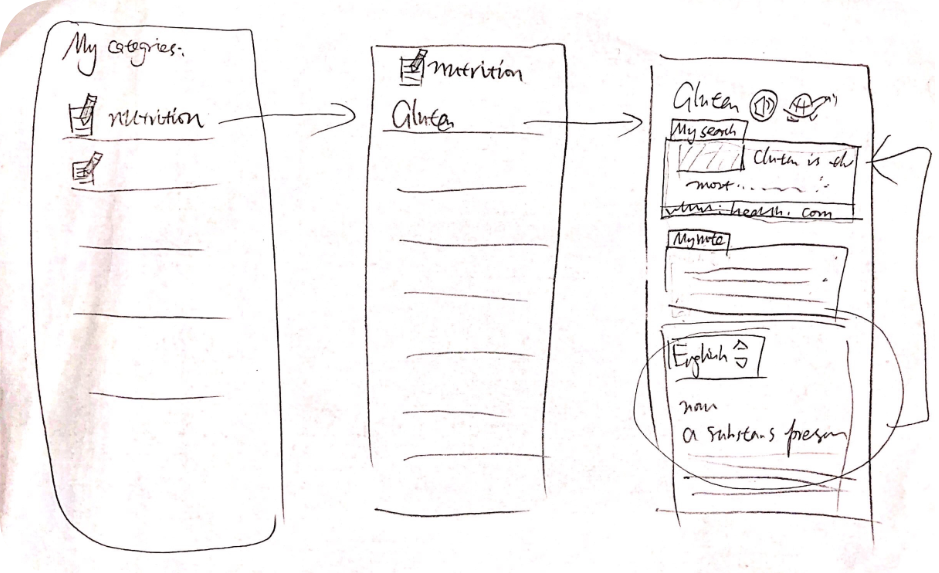 My categries:
nutrition
nutrition
Gluten
Gluten
My search
Gluten is the
most
health. com
My note
English
noun
a substans presen